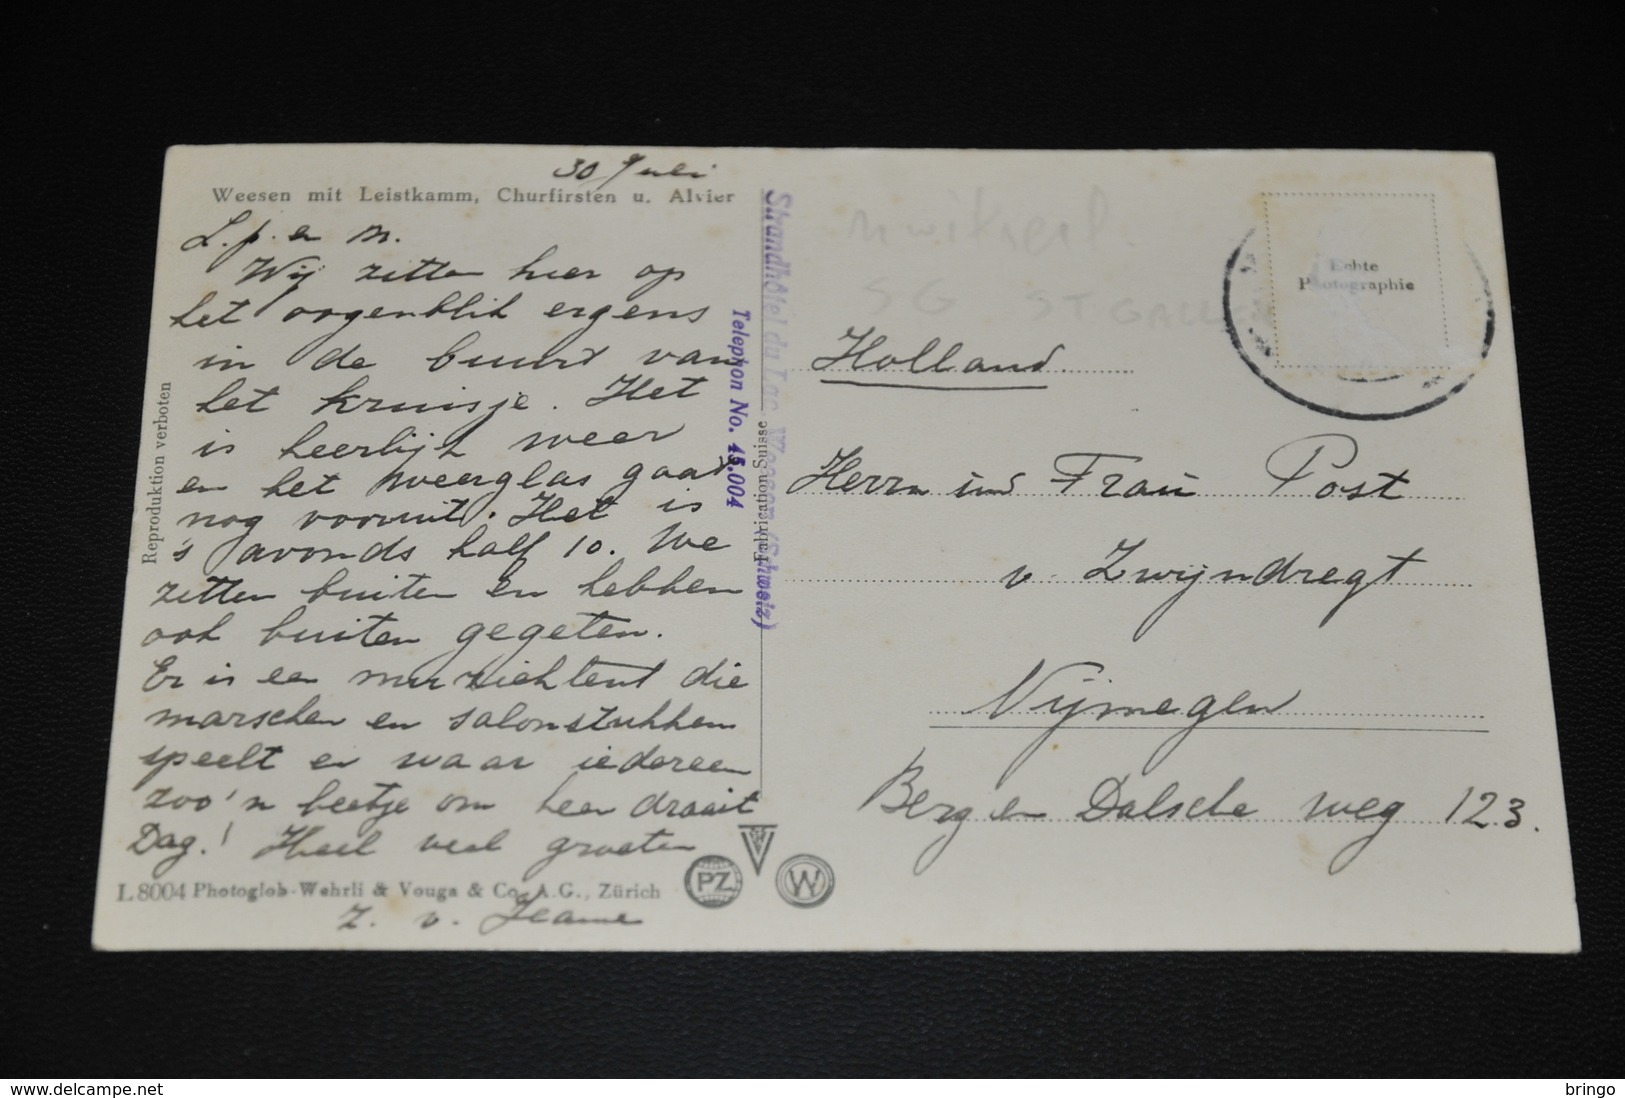 30 Juli
Weesen mit Leistkamm, Churfirsten u. Alvier
L.p. en m.
Wij zitten hier op
het oogenblik ergens
in de buurt van
het kruisje. Het
is heerlijk weer
en het weerglas gaat
nog vooruit. Het is
's avonds half 10. We
zitten buiten en hebben
ook buiten gegeten.
Er is een muziektent die
marschen en salonstukken
speelt en waar iedereen
zoo'n beetje om heen draait
Dag! Heel veel groeten
L.8004 Photoglob-Wehrli & Vouga & Co. A.G., Zürich
Z. v.
Reproduktion verboten
Strandhôtel du Lac Weesen (Schweiz)
Telephon No. 45.004
Fabrication Suisse
PZ
W
SG ST. GALLEN
Echte
Photographie
Holland
Herrn und Frau Post
v. Zwijndregt
Nijmegen
Berg en Dalsche weg 123.
bringo